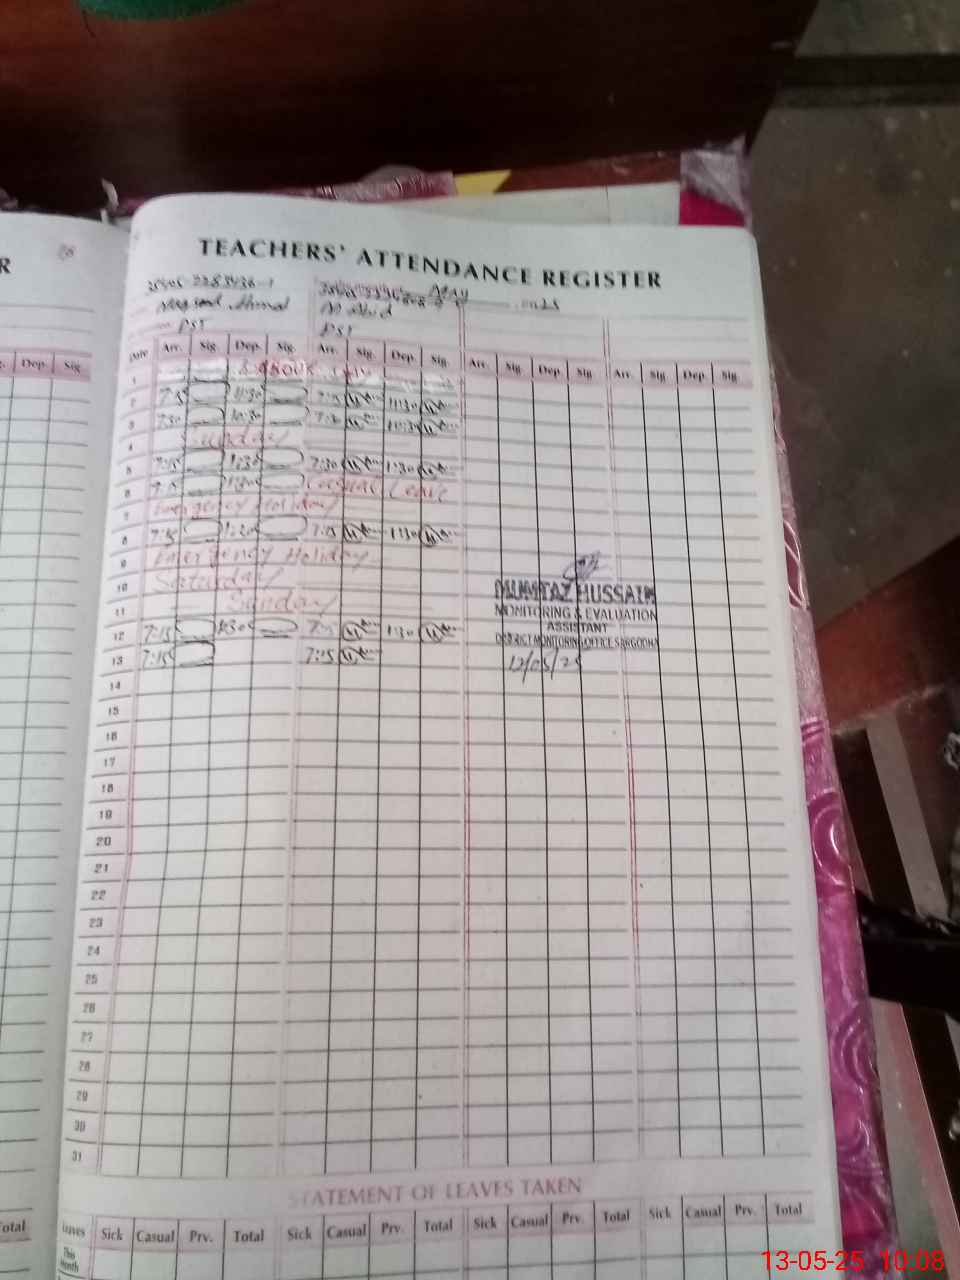 R
TEACHERS' ATTENDANCE REGISTER
38405-2283436-1 May 2025
Maqsood Ahmad M Abid
PST PST
Dep. Sig. Date Arr. Sig. Dep. Sig. Arr. Sig. Dep. Sig. Arr. Sig Dep Sig Arr. Sig Dep. Sig
1 LABOUR DAY
2 7:15 11:30 7:15 11:30
3 7:30 10:30 7:30 11:30
4 Sunday
5 7:15 1:30 7:30 1:30
6 7:15 1:30 Casual Leave
7 Emergency Holiday
8 7:15 1:30 7:15 1:30
9 Emergency Holiday
10 Saturday
11 Sunday
12 7:15 1:30 7:15 1:30
13 7:15 7:15
MUMTAZ HUSSAIN
MONITORING & EVALUATION
ASSISTANT
DISTRICT MONITORING OFFICE SARGODHA
12/05/25
14
15
16
17
18
19
20
21
22
23
24
25
26
27
28
29
30
31
STATEMENT OF LEAVES TAKEN
Total Leaves Sick Casual Prv. Total Sick Casual Prv. Total Sick Casual Prv. Total Sick Casual Prv. Total
This
Month
13-05-25 10:08